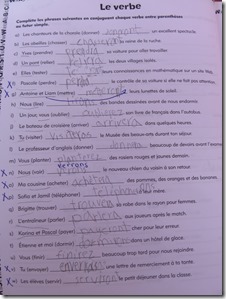 Le verbe
Complète les phrases suivantes en conjuguant chaque verbe entre parenthèses
au futur simple.
a) Les chanteurs de la chorale (donner) un excellent spectacle.
b) Les abeilles (chasser) la reine de la ruche.
c) Yves (prendre) sa voiture pour aller travailler.
d) Un pont (relier) reliera les deux villages isolés.
e) Elles (tester) leurs connaissances en mathématique sur un site
f) Pascale (perdre) perdra le contrôle de sa voiture si elle ne fait pas attention.
x g) Antoine et Liam (mettre) leurs lunettes de soleil.
h) Nous (lire) des bandes dessinées avant de nous endormir.
i) Un jour, vous (oublier) oublierez son livre de français dans l'autobus.
j) Le bateau de croisière (arriver) arrivera dans quelques heures.
k) Tu (visiter) visiteras le Musée des beaux-arts durant ton séjour.
l) Le professeur d'anglais (donner) donnera beaucoup de devoirs avant l'examen
m) Vous (planter) des rosiers rouges et jaunes demain.
verrons
x n) Nous (voir) le nouveau chien du voisin à son retour.
x o) Ma cousine (acheter) des pommes, des oranges et des bananes.
x p) Sofia et Jamil (téléphoner) à leur mère.
q) Brigitte (trouver) trouvera sa robe dans le rayon pour femmes.
r) L'entraîneur (parler) parlera aux joueurs après le match.
s) Karina et Pascal (payer) cher pour leur erreur.
t) Étienne et moi (dormir) dans un hôtel de glace.
u) Vous (finir) finirez beaucoup trop tard pour nous rejoindre.
x v) Tu (envoyer) une lettre de remerciement à ta tante.
x w) Les élèves (servir) le petit déjeuner dans la classe.